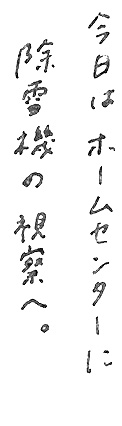 今日はホームセンターに
除雪機の視察へ。